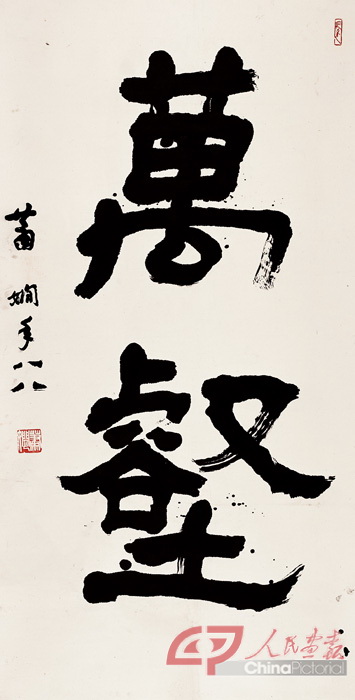 萬壑
蕭嫻年八八
人民画报
ChinaPictorial